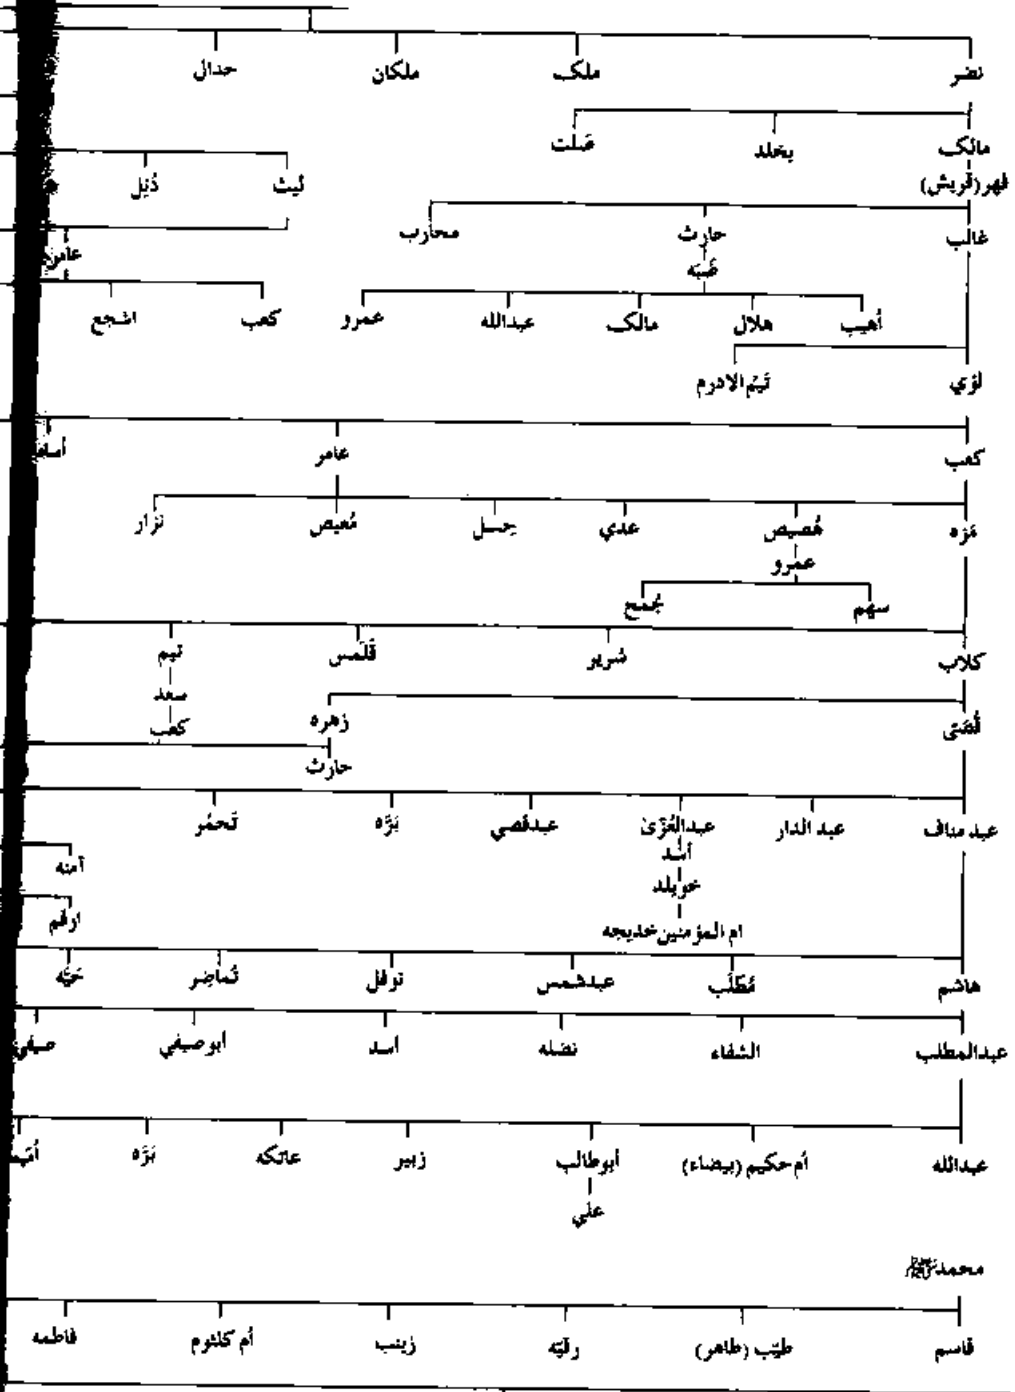 نضر ملک ملکان حدال
مالک یخلد صلت
فهر (قریش) لیث دُئِل
غالب حارث محارب
عامر
ضَبّه
أهیب هلال مالک عبدالله عمرو کعب اشجع
لؤي تَیْم الادرم
کعب عامر
مُرّه هُصیص عدي حِسل مُعیص نزار
عمرو
سهم جُمح
کلاب شریر قَلَمّس تیم
سعد
قُصَی زهره کعب
حارث
عبدمناف عبدالدار عبدالعُزّیٰ عبدقصي بَرَّه تَخمُر
أسد آمنه
خویلد
ام المؤمنین خدیجه ارقم
هاشم مُطّلَب عبدشمس نوفل تُماضِر حَیَّه
عبدالمطلب الشفاء نضله اسد ابوصیفي صیفي
عبدالله أم حکیم (بیضاء) أبوطالب زبیر عاتکه بَرَّه
علي
محمدﷺ
قاسم طیّب (طاهر) رقیّه زینب أم کلثوم فاطمه